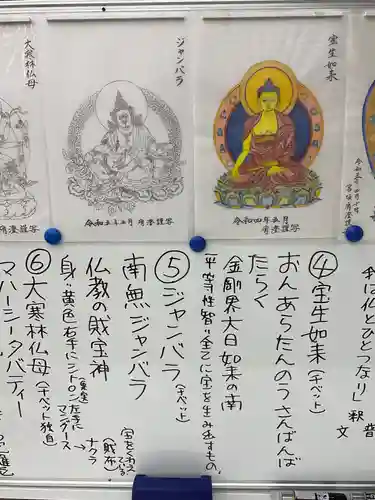 宝生如来
令和四年五月 彦澄謹写
ジャンバラ
令和五年五月 彦澄謹写
大寒林仏母
私は仏とひとつなり」釈
④宝生如来(チベット)
おんあらたんのうさんばんば
たらく
金剛界大日如来の南
平等性智(全てに宝を生み出すもの。
⑤ジャンバラ(チベット)
南無ジャンバラ
仏教の財宝神
身(黄色)右手にシトロン左手に
マングース
(財布)
ナクラ
宝をくわえ
ている
⑥大寒林仏母(チベット独自)
マハーシータバティー